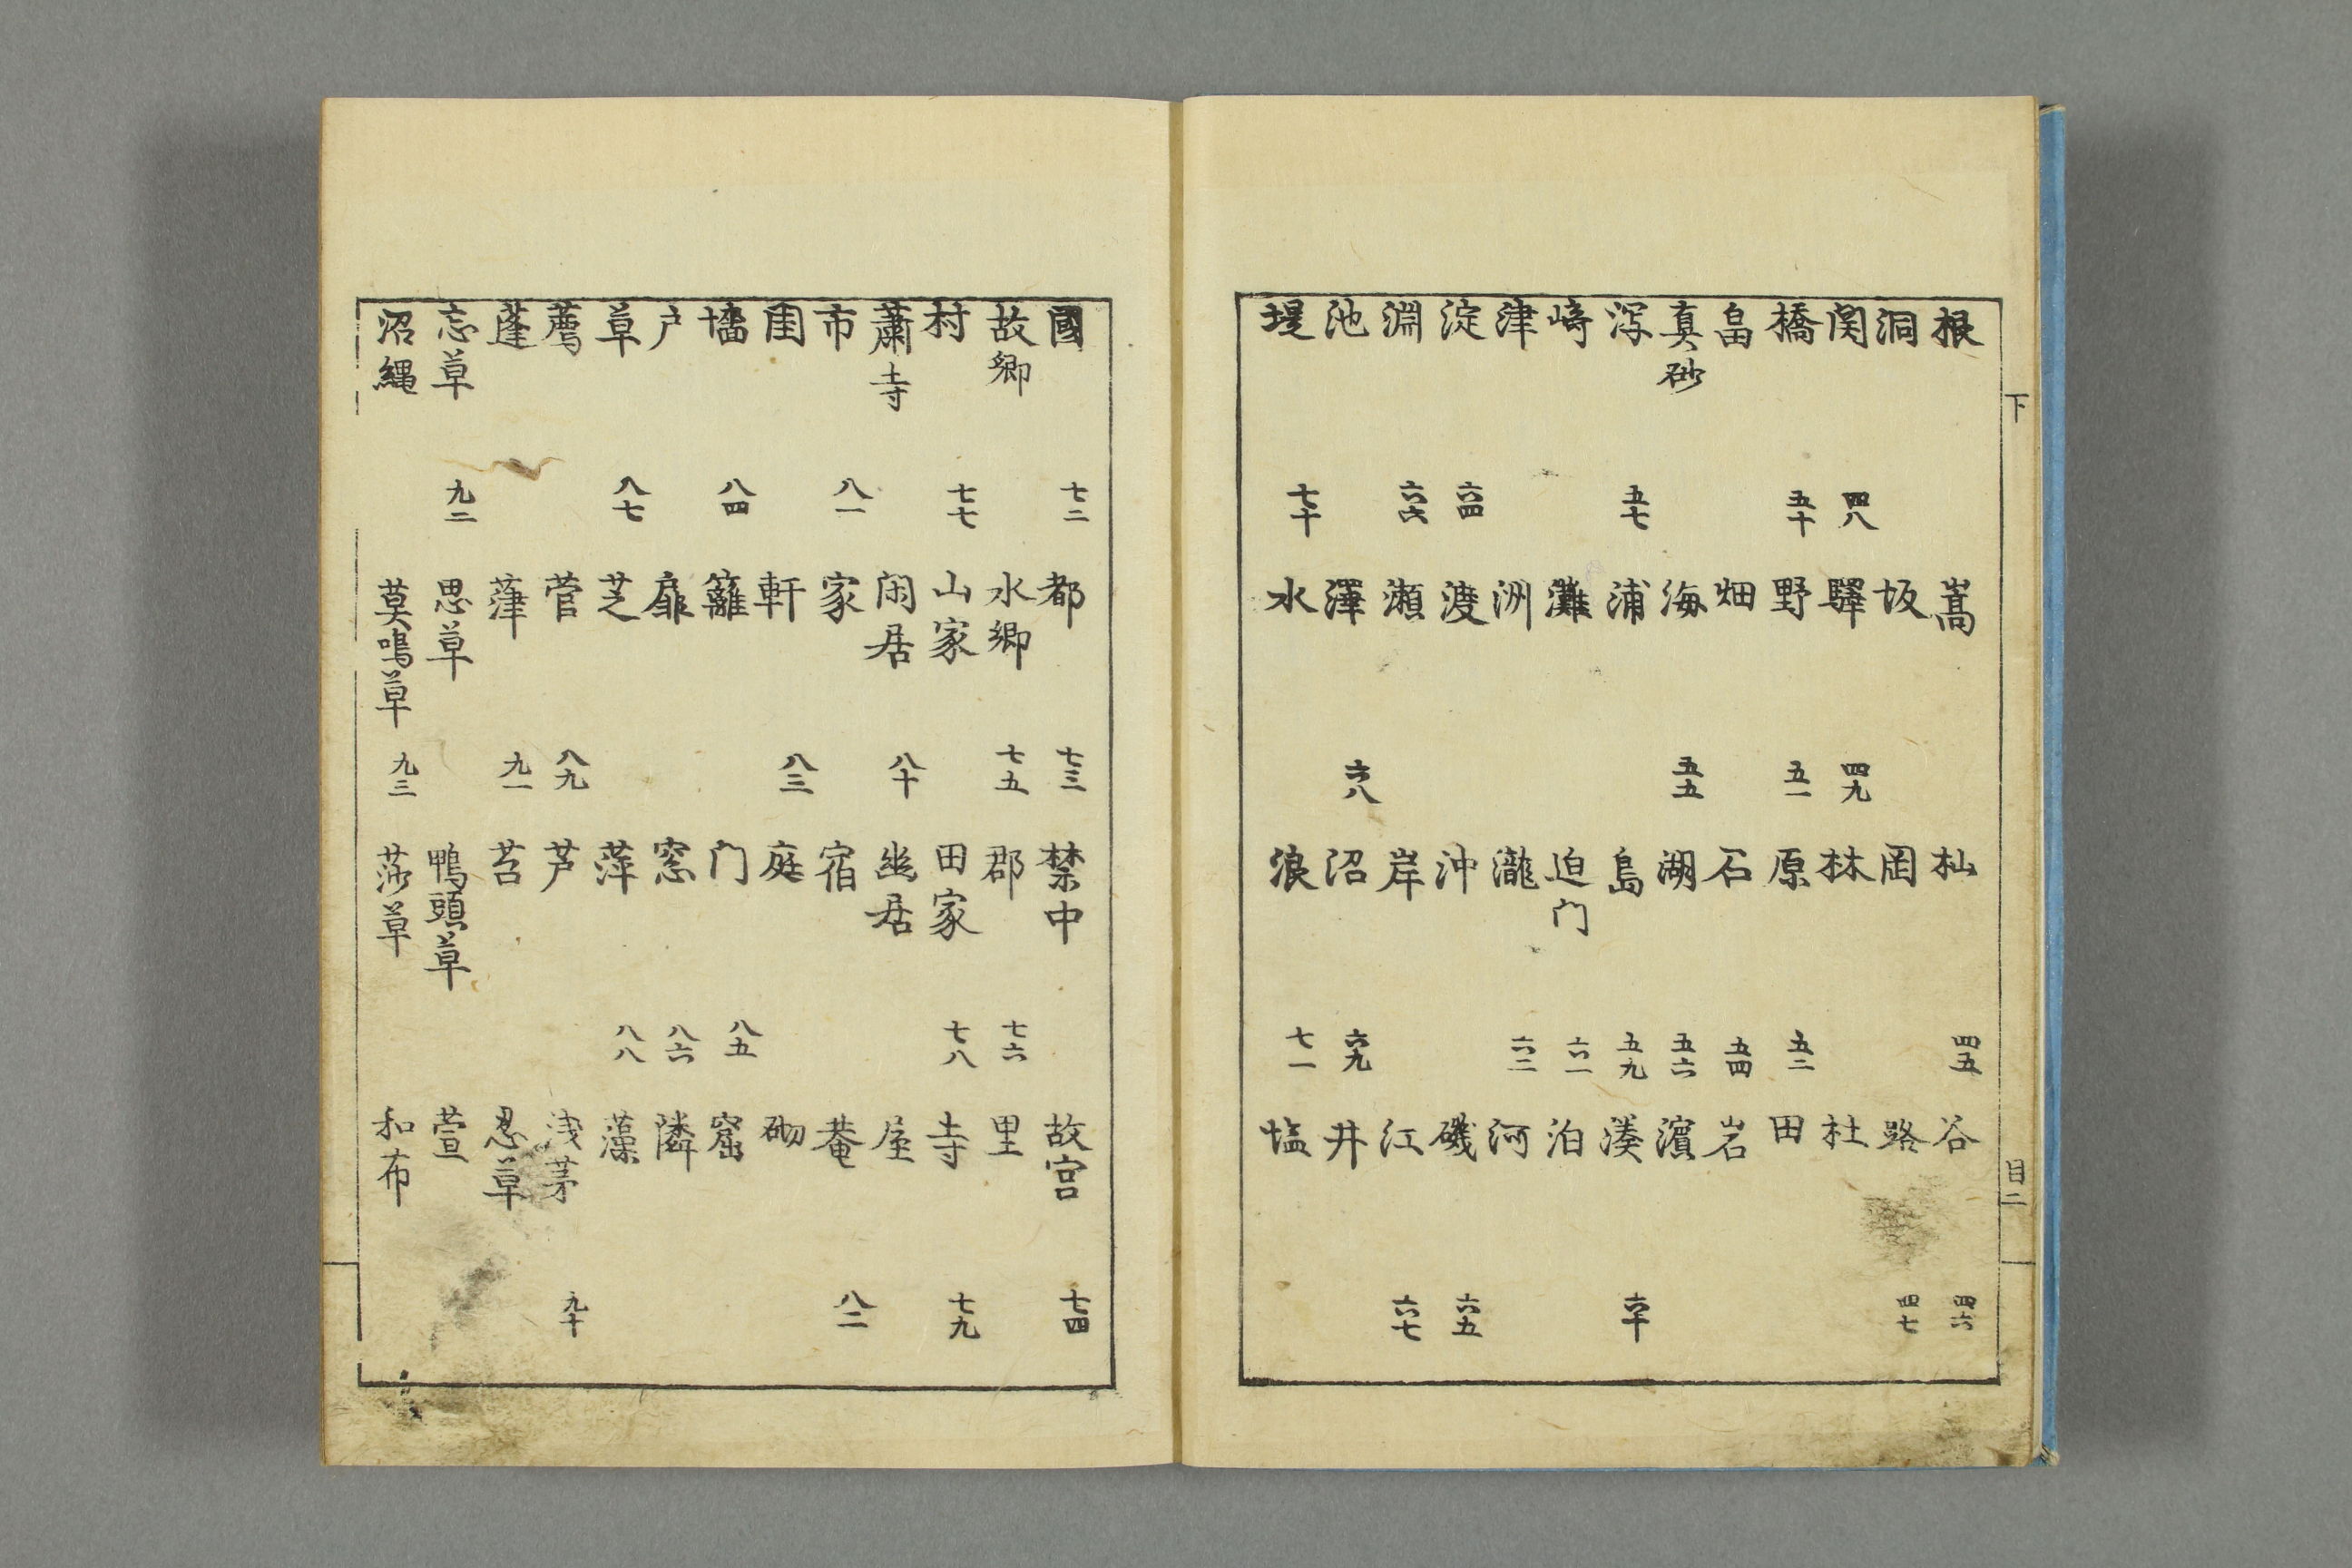 下 目二
根 嵩 杣 四五 谷 四六
洞 坂 岡 路 四七
関 四八 驛 四九 林 杜
橋 五十 野 五一 原 五二 田
畠 畑 石 五四 岩
真砂 海 五五 湖 五六 濱
泻 五七 浦 島 五九 湊 六十
崎 灘 迫门 六一 泊
津 洲 瀧 六二 河
淀 六四 渡 沖 磯 六五
淵 六六 瀬 岸 江 六七
池 澤 六八 沼 六九 井
堤 七十 水 浪 七一 塩
國 七二 都 七三 禁中 故宮 七四
故郷 水郷 七五 郡 七六 里
村 七七 山家 田家 七八 寺 七九
蕭寺 閑居 八十 幽居 屋
市 八一 家 宿 菴 八二
園 軒 八三 庭 砌
墻 八四 籬 门 八五 窟
戸 扉 窓 八六 隣
草 八七 芝 萍 八八 藻
薦 菅 八九 芦 浅茅 九十
蓬 葎 九一 苔 忍草
忘草 九二 思草 鴨頭草 萱
沼縄 莫鳴草 九三 莎草 和布